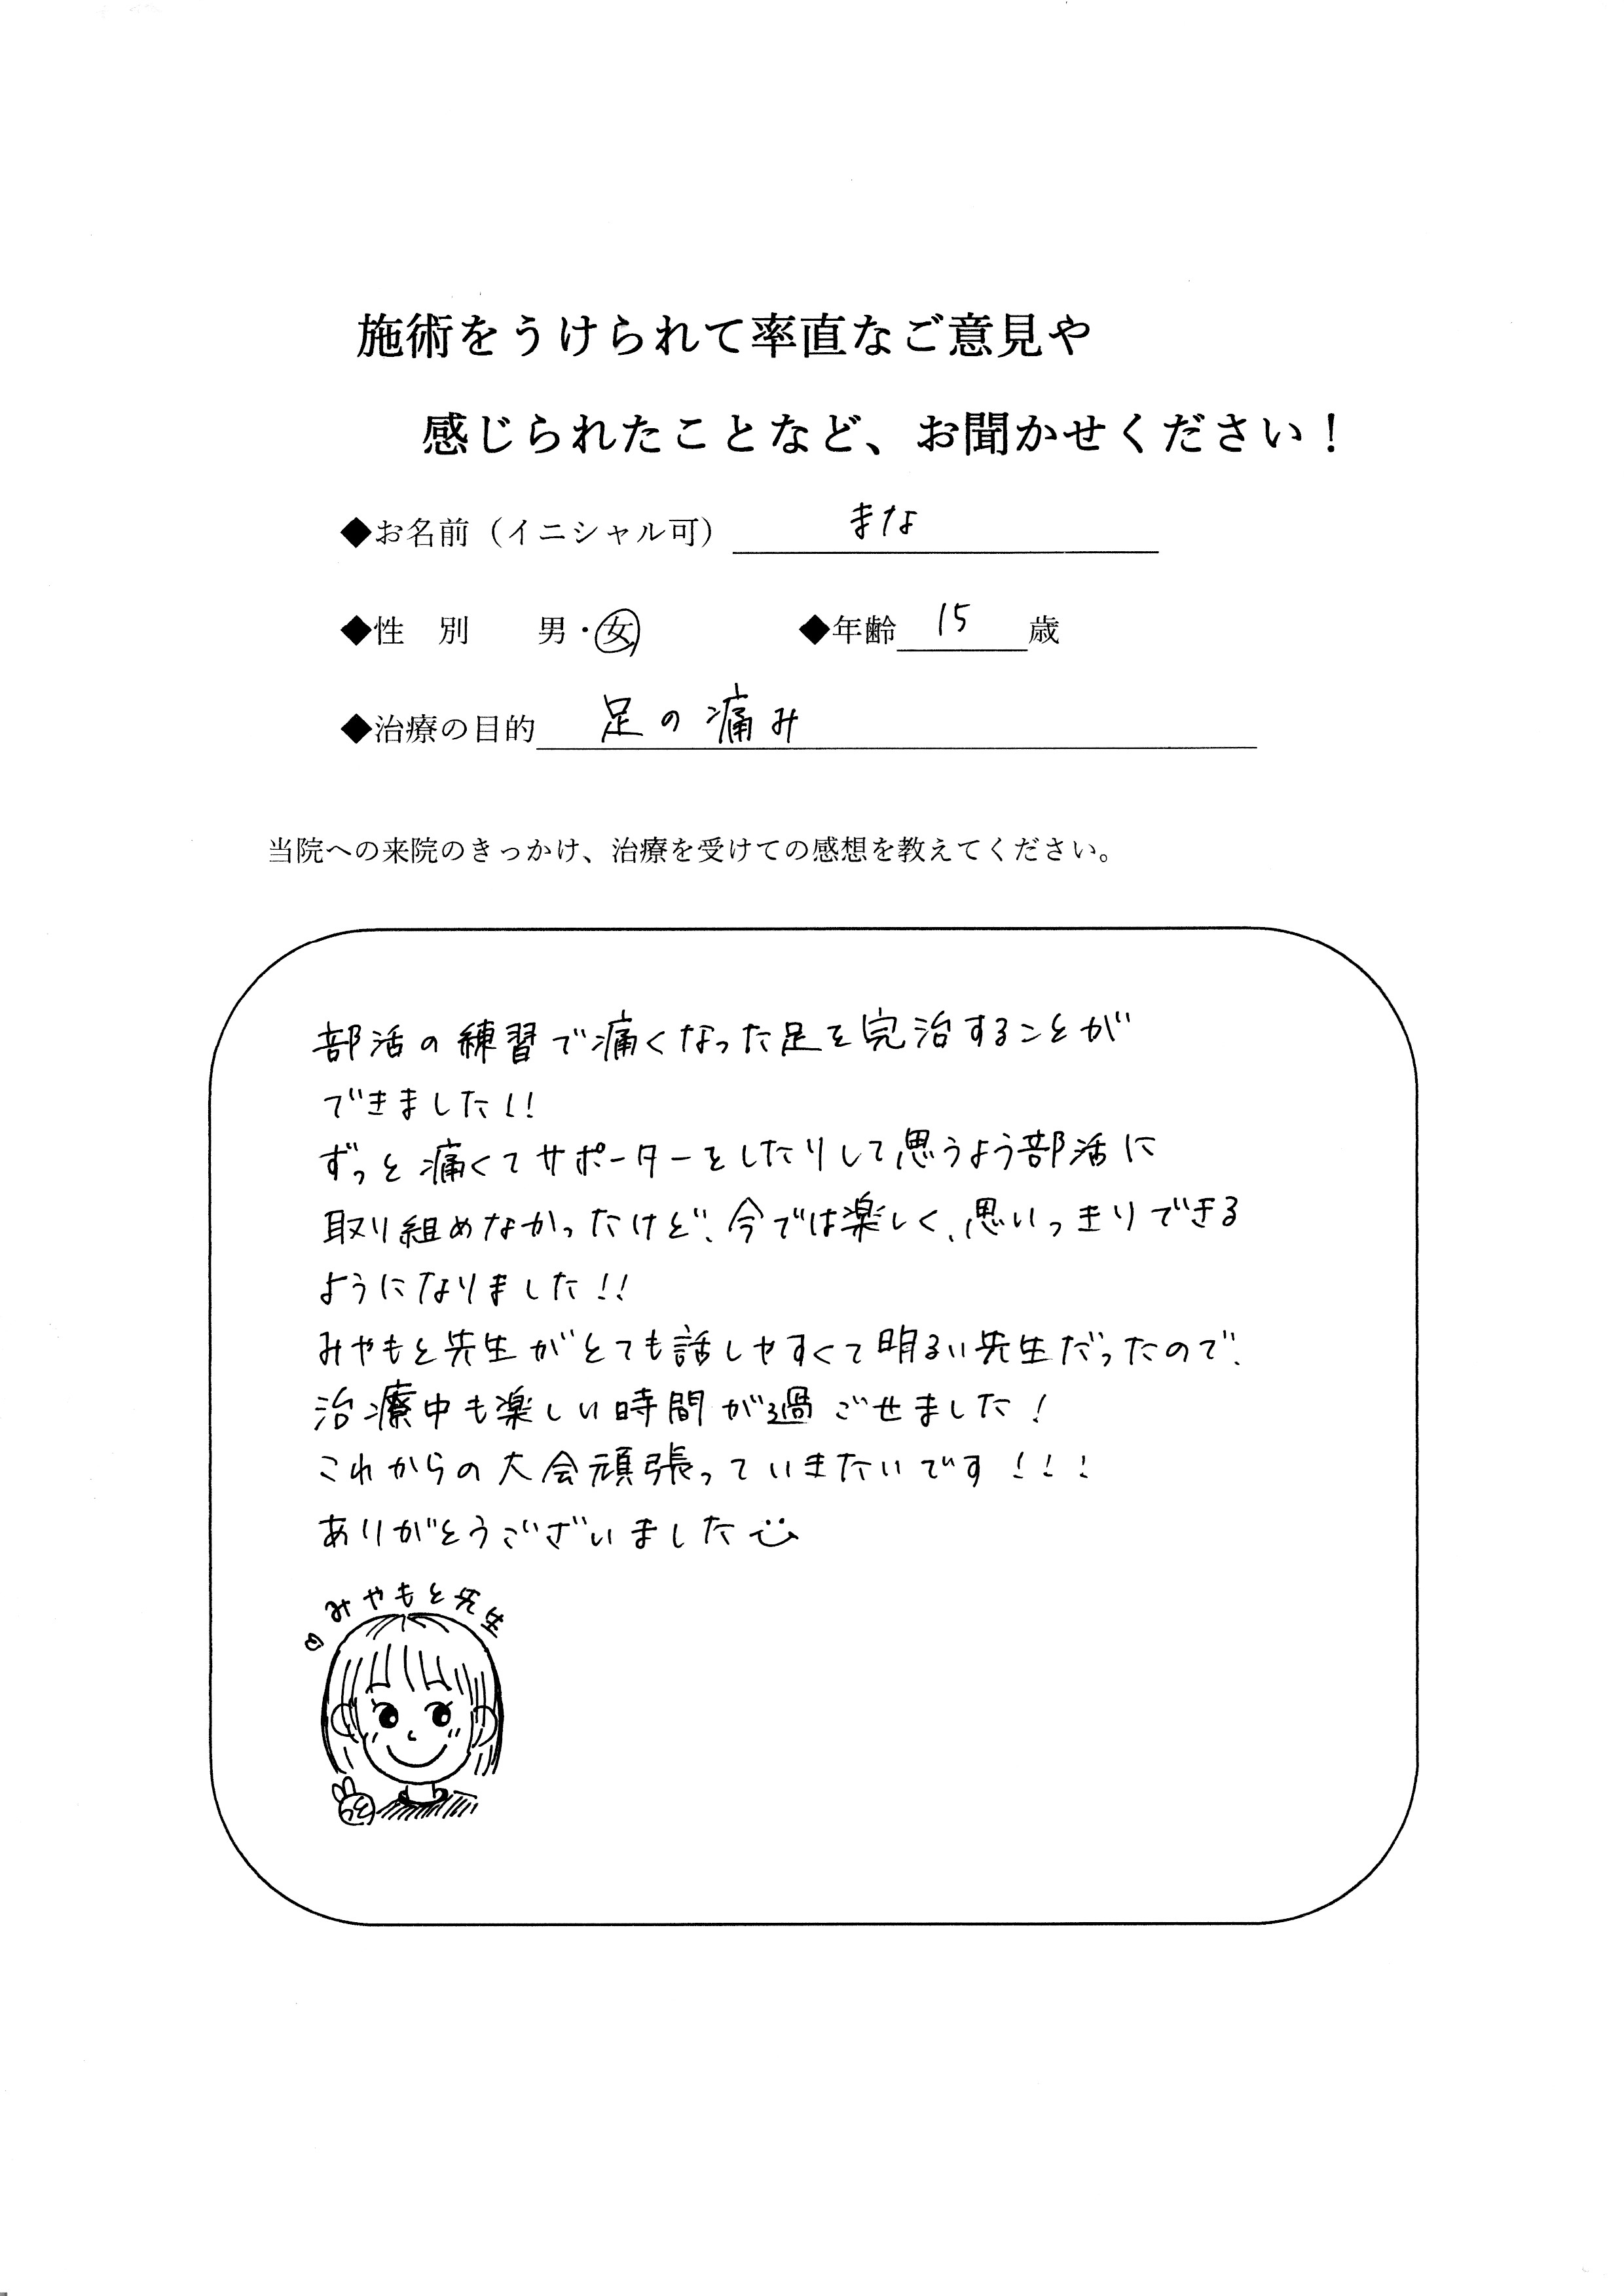 施術をうけられて率直なご意見や
感じられたことなど、お聞かせください！
◆お名前（イニシャル可） まな
◆性　別　　男・女　　◆年齢 15 歳
◆治療の目的 足の痛み
当院への来院のきっかけ、治療を受けての感想を教えてください。
部活の練習で痛くなった足を完治することが
できました!!
ずっと痛くてサポーターをしたりして思うよう部活に
取り組めなかったけど、今では楽しく、思いっきりできる
ようになりました!!
みやもと先生がとても話しやすくて明るい先生だったので、
治療中も楽しい時間が過ごせました!
これからの大会頑張っていきたいです!!!
ありがとうございました
みやもと先生